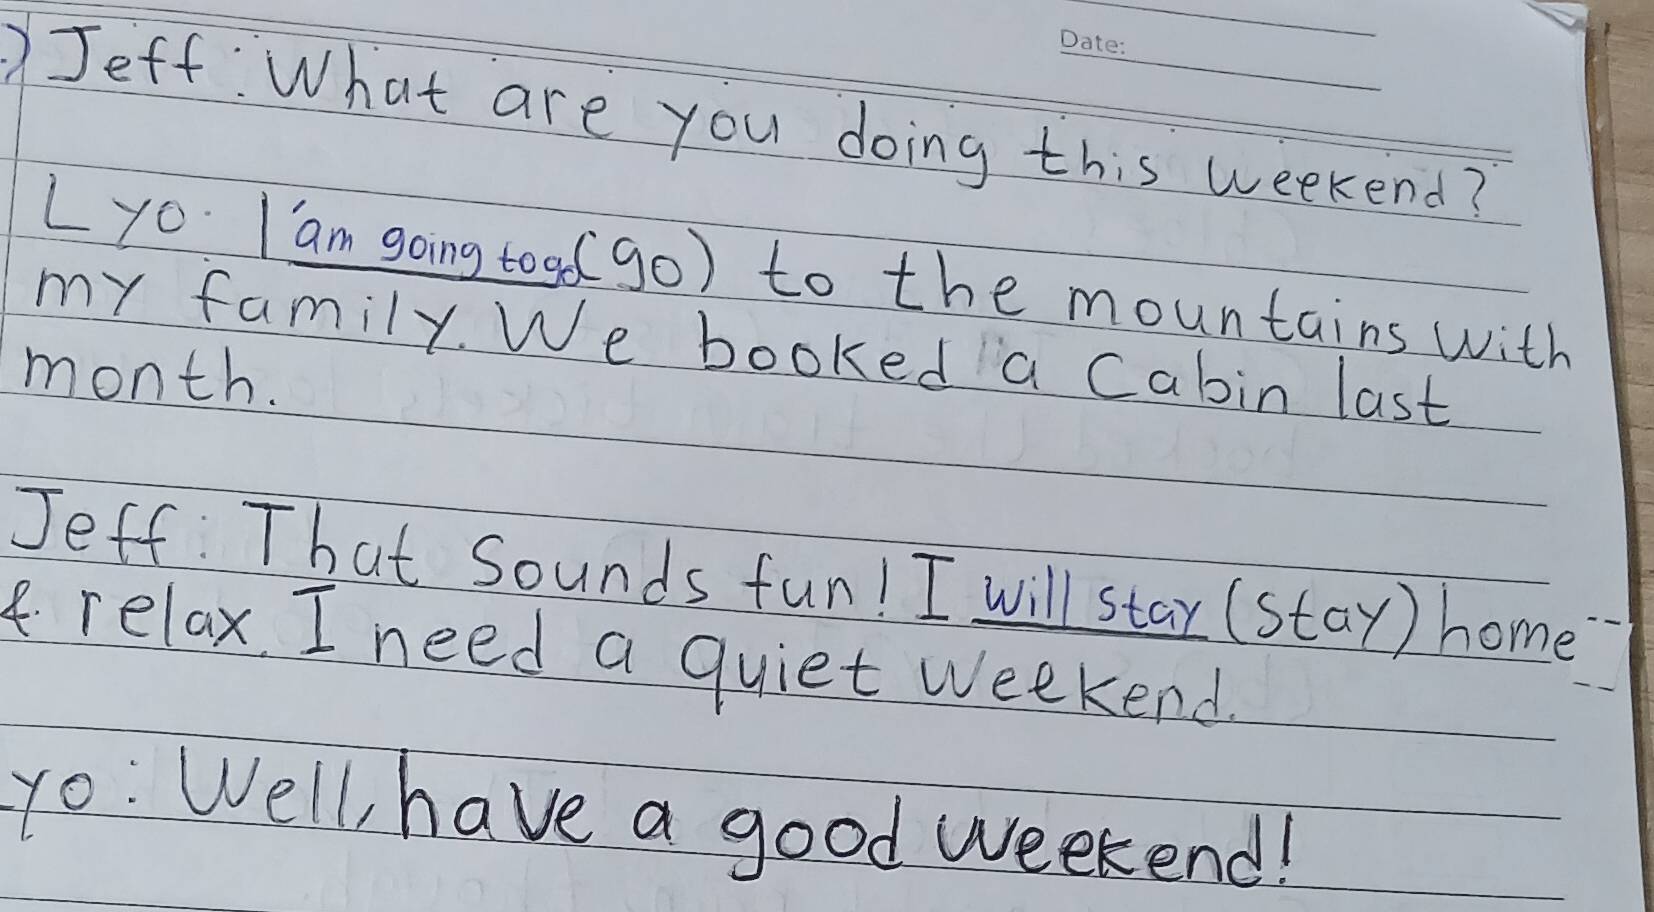 Date:
) Jeff: What are you doing this weekend?
Lyo: I'am going to go (go) to the mountains with
my family. We booked a cabin last
month.
Jeff: That sounds fun! I will stay (stay) home
& relax. I need a quiet weekend.
yo: Well, have a good weekend!